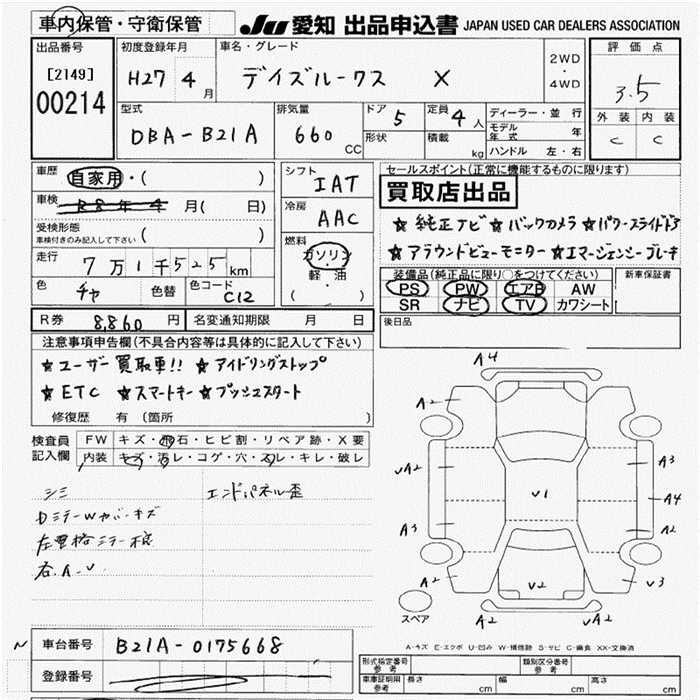 車内保管・守衛保管 JU 愛知 出品申込書 JAPAN USED CAR DEALERS ASSOCIATION
出品番号 初度登録年月 車名・グレード 2WD・4WD 評価点
[2149] H27 4月 デイズルークス X 3.5
00214 外装 内装
型式 排気量 ドア 5 定員 4人 ディーラー・並行 C C
DBA-B21A 660 CC 形状 積載 kg モデル年式 年
ハンドル 左・右
車歴 自家用・( ) シフト IAT セールスポイント(正常に機能するものに限ります)
買取店出品
車検 R8年4月( 日) 冷房 AAC ★純正ナビ ★バックカメラ ★パワースライドドア
受検形態 車検付きのみ記入して下さい ( ) ★アラウンドビューモニター ★エマージェンシーブレーキ
走行 7万1千525km 燃料 ガソリン・軽油 ( ) 装備品(純正品に限り○をつけてください) 新車保証書
色 チャ 色替 色コード C12 PS PW エアB AW
SR ナビ TV カワシート
R券 8,860円 名変通知期限 月 日 後日品
注意事項申告欄(不具合内容等は具体的に記入して下さい)
★ユーザー買取車!! ★アイドリングストップ
★ETC ★スマートキー ★プッシュスタート
修復歴 有 (箇所 )
検査員記入欄 FW キズ・飛石・ヒビ割・リペア跡・X要
内装 キズ・汚レ・コゲ・穴・スレ・キレ・破レ
シミ エンドパネル歪
DミラーWカバーキズ
右A-U
A4
A2 A2
UA2 A3
V1 A4
A3 A2
A2 V2 V3
スペア A2 UA2
A-キズ E-エクボ U-凹み W-補修跡 S-サビ C-腐食 XX-交換済
車台番号 B21A-0175668
登録番号
形式指定番号 参考 類別区分番号 参考
車庫証明用 参考 長さ cm 幅 cm 高さ cm